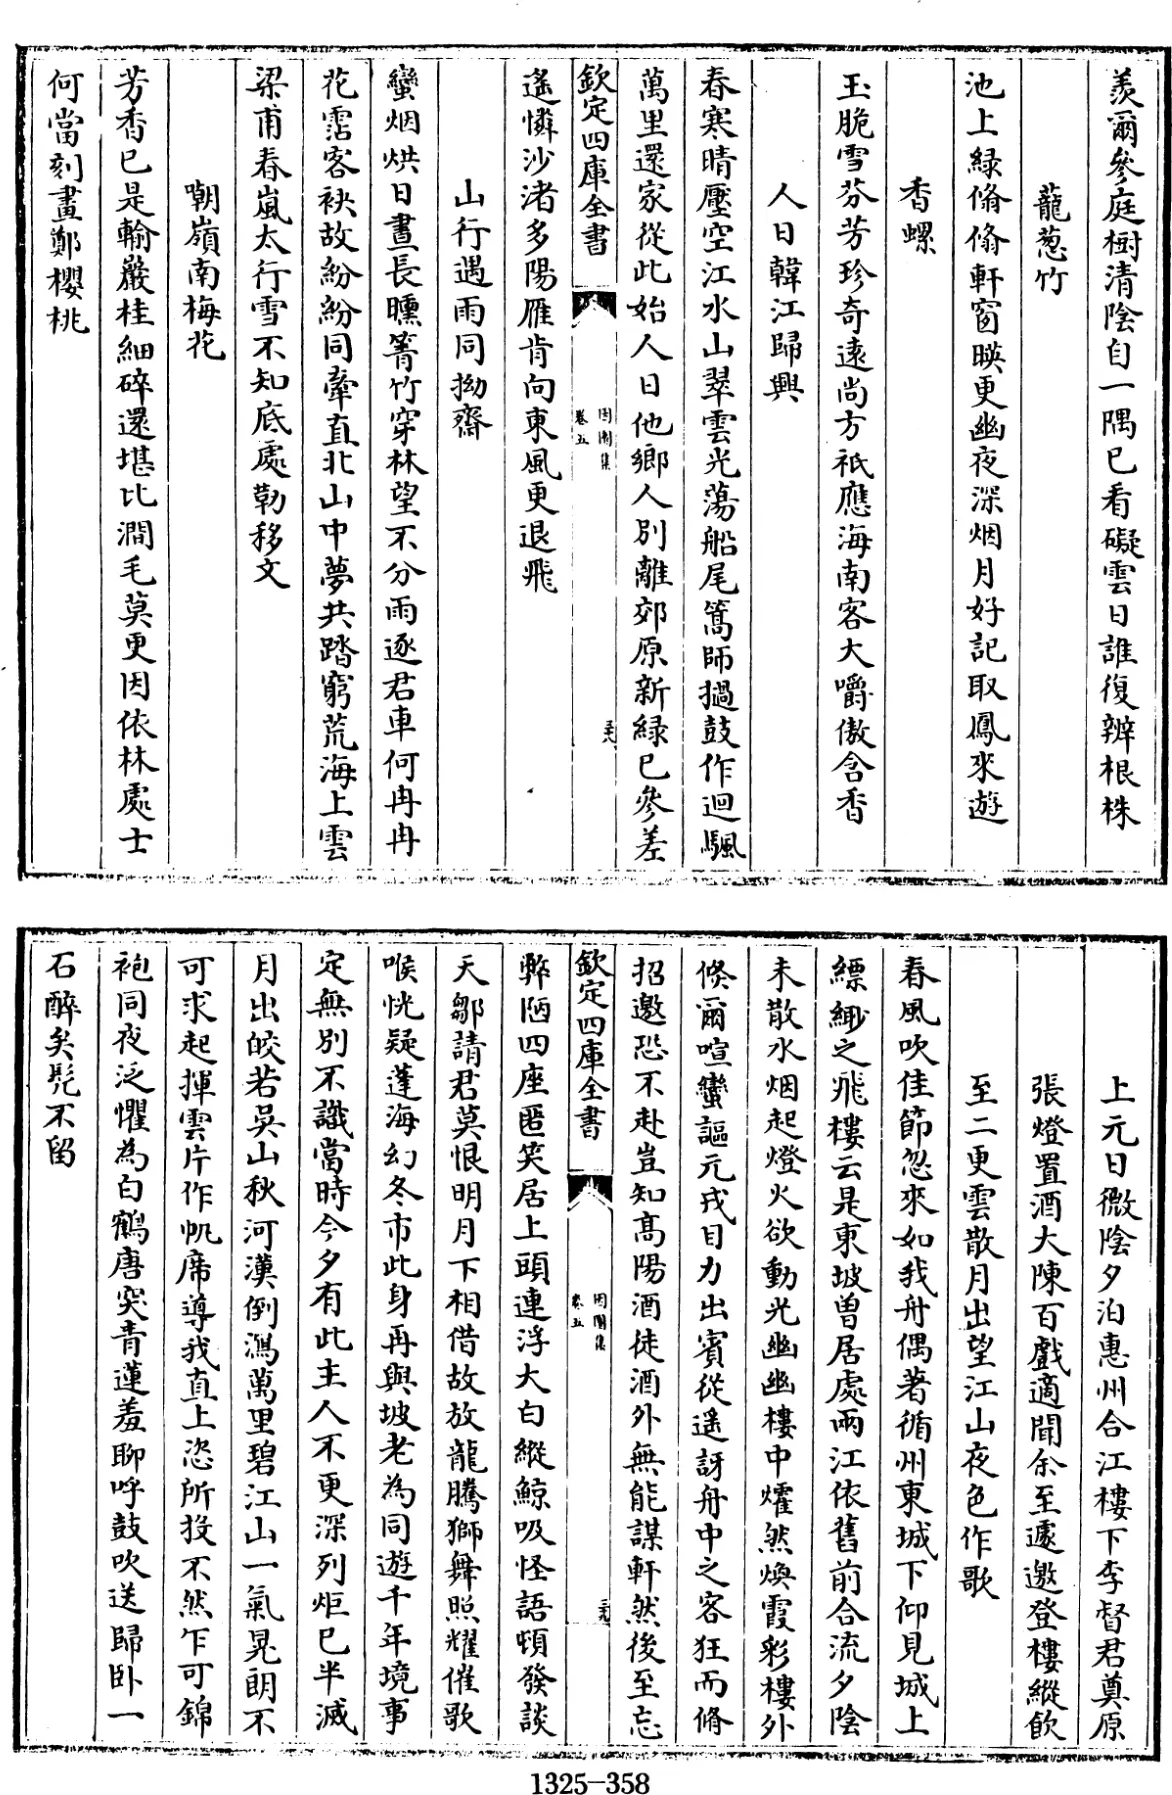 羨爾參庭樹清陰自一隅已看礙雲日誰復辨根株
蘢葱竹
池上緑翛翛軒窗暎更幽夜深烟月好記取鳳來遊
香螺
玉脆雪芬芳珍奇逺尚方祇應海南客大嚼傲含香
人日韓江歸興
春寒晴壓空江水山翠雲光蕩船尾篙師撾鼓作迴颿
萬里還家從此始人日他鄉人别離郊原新緑已參差
欽定四庫全書
因園集
卷五
遙憐沙渚多陽雁肯向東風更退飛
山行遇雨同拗齋
蠻烟烘日晝長曛箐竹穿林望不分雨逐君車何冉冉
花霑客袂故紛紛同牽直北山中夢共踏窮荒海上雲
梁甫春嵐太行雪不知底處勒移文
嘲嶺南梅花
芳香已是輸巖桂細碎還堪比澗毛莫更因依林處士
何當刻畫鄭櫻桃
上元日微陰夕泊惠州合江樓下李督君奠原
張燈置酒大陳百戲適聞余至遽邀登樓縱飲
至二更雲散月出望江山夜色作歌
春風吹佳節忽來如我舟偶著循州東城下仰見城上
縹緲之飛樓云是東坡曾居處兩江依舊前合流夕陰
未散水烟起燈火欲動光幽幽樓中爟然煥霞彩樓外
倐爾喧蠻謳元戎目力出賓從遥訝舟中之客狂而脩
招邀恐不赴豈知髙陽酒徒酒外無能謀軒然後至忘
欽定四庫全書
因園集
卷五
弊陋四座匿笑居上頭連浮大白縱鯨吸怪語頓發談
天鄒請君莫恨明月下相借故放龍騰獅舞照耀催歌
喉恍疑蓬海幻冬市此身再與坡老為同遊千年境事
定無别不識當時今夕有此主人不更深列炬已半滅
月出皎若吳山秋河漢倒瀉萬里碧江山一氣晃朗不
可求起揮雲片作帆席導我直上恣所投不然乍可錦
袍同夜泛懼為白鶴唐突青蓮羞聊呼鼓吹送歸卧一
石醉矣髠不留
1325-358